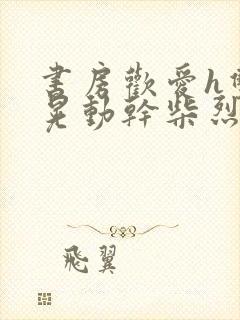 書房歡愛h
晃動幹柴烈
飛翼